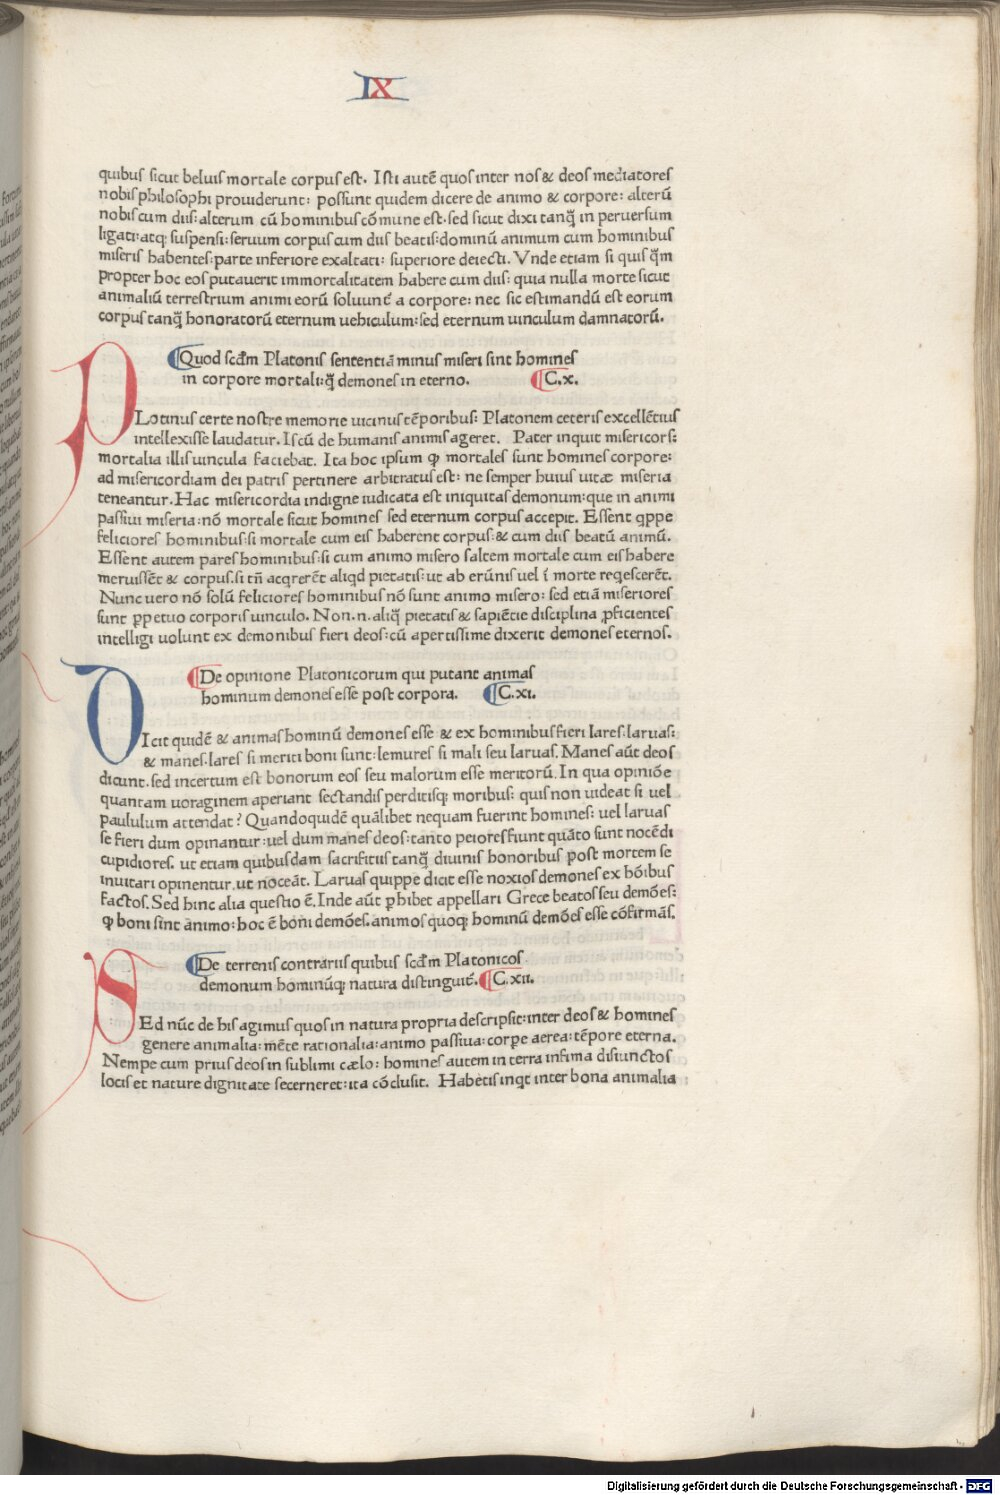 IX
quibus sicut beluis mortale corpus est. Isti autē quos inter nos & deos mediatores
nobis philosophi prouiderunt: possunt quidem dicere de animo & corpore: alterū
nobiscum diis: alterum cū hominibus cōmune est. sed sicut dixi tanq̄ in peruersum
ligati: atq; suspensi: seruum corpus cum diis beatis: dominū animum cum hominibus
miseris habentes: parte inferiore exaltati: superiore deiecti. Vnde etiam si quis q̄m
propter hoc eos putauerit immortalitatem habere cum diis: quia nulla morte sicut
animaliū terrestrium animi eorū soluunt᷑ a corpore: nec sic estimandū est eorum
corpus tanq̄ honoratorū eternum uehiculum: sed eternum uinculum damnatorū.
¶Quod scd̄m Platonis sententiā minus miseri sint homines
in corpore mortali: q̄ demones in eterno. ¶C.x.
PLotinus certe nostre memorie uicinus tēporibus: Platonem ceteris excellētius
intellexisse laudatur. Is cū de humanis animis ageret. Pater inquit misericors:
mortalia illis uincula faciebat. Ita hoc ipsum ꝙ mortales sunt homines corpore:
ad misericordiam dei patris pertinere arbitratus est: ne semper huius uitæ miseria
teneantur. Hac misericordia indigne iudicata est iniquitas demonum: que in animi
passiui miseria: nō mortale sicut homines sed eternum corpus accepit. Essent qͥppe
feliciores hominibus: si mortale cum eis haberent corpus: & cum diis beatū animū.
Essent autem pares hominibus: si cum animo misero saltem mortale cum eis habere
meruissēt & corpus. si tn̄ acqrerēt aliqd pietatis: ut ab erūnis uel ī morte reqescerēt.
Nunc uero nō solū feliciores hominibus nō sunt animo misero: sed etiā miseriores
sunt ꝑpetuo corporis uinculo. Non.n.aliq̄ pietatis & sapiētie disciplina ꝓficientes
intelligi uolunt ex demonibus fieri deos: cū apertissime dixerit demones eternos.
¶De opinione Platonicorum qui putant animas
hominum demones esse post corpora. ¶C.xi.
DIcit quidē & animas hominū demones esse & ex hominibus fieri lares. laruas:
& manes. lares si meriti boni sunt: lemures si mali seu laruas. Manes aūt deos
dicunt. sed incertum est bonorum eos seu malorum esse meritorū. In qua opiniōe
quantam uoraginem aperiant sectandis perditisq; moribus: quis non uideat si uel
paululum attendat? Quandoquidē quālibet nequam fuerint homines: uel laruas
se fieri dum opinantur: uel dum manes deos: tanto peiores fiunt quāto sunt nocēdi
cupidiores. ut etiam quibusdam sacrificiis tanq̄ diuinis honoribus post mortem se
inuitari opinentur. ut noceāt. Laruas quippe dicit esse noxios demones ex hōibus
factos. Sed hinc alia questio ē. Inde aūt ꝑhibet appellari Grece beatos seu demōes:
ꝙ boni sint animo: hoc ē boni demōes. animos quoq; hominū demōes esse cōfirmās.
¶De terrenis contrariis quibus scd̄m Platonicos
demonum hominūq; natura distinguit᷑. ¶C.xii.
SEd nūc de his agimus quos in natura propria descripsit: inter deos & homines
genere animalia: mēte rationalia: animo passiua: corpe aerea: tēpore eterna.
Nempe cum prius deos in sublimi cælo: homines autem in terra infima disiunctos
locis et nature dignitate secerneret: ita cōclusit. Habetis inqt inter bona animalia
Digitalisierung gefördert durch die Deutsche Forschungsgemeinschaft - DFG